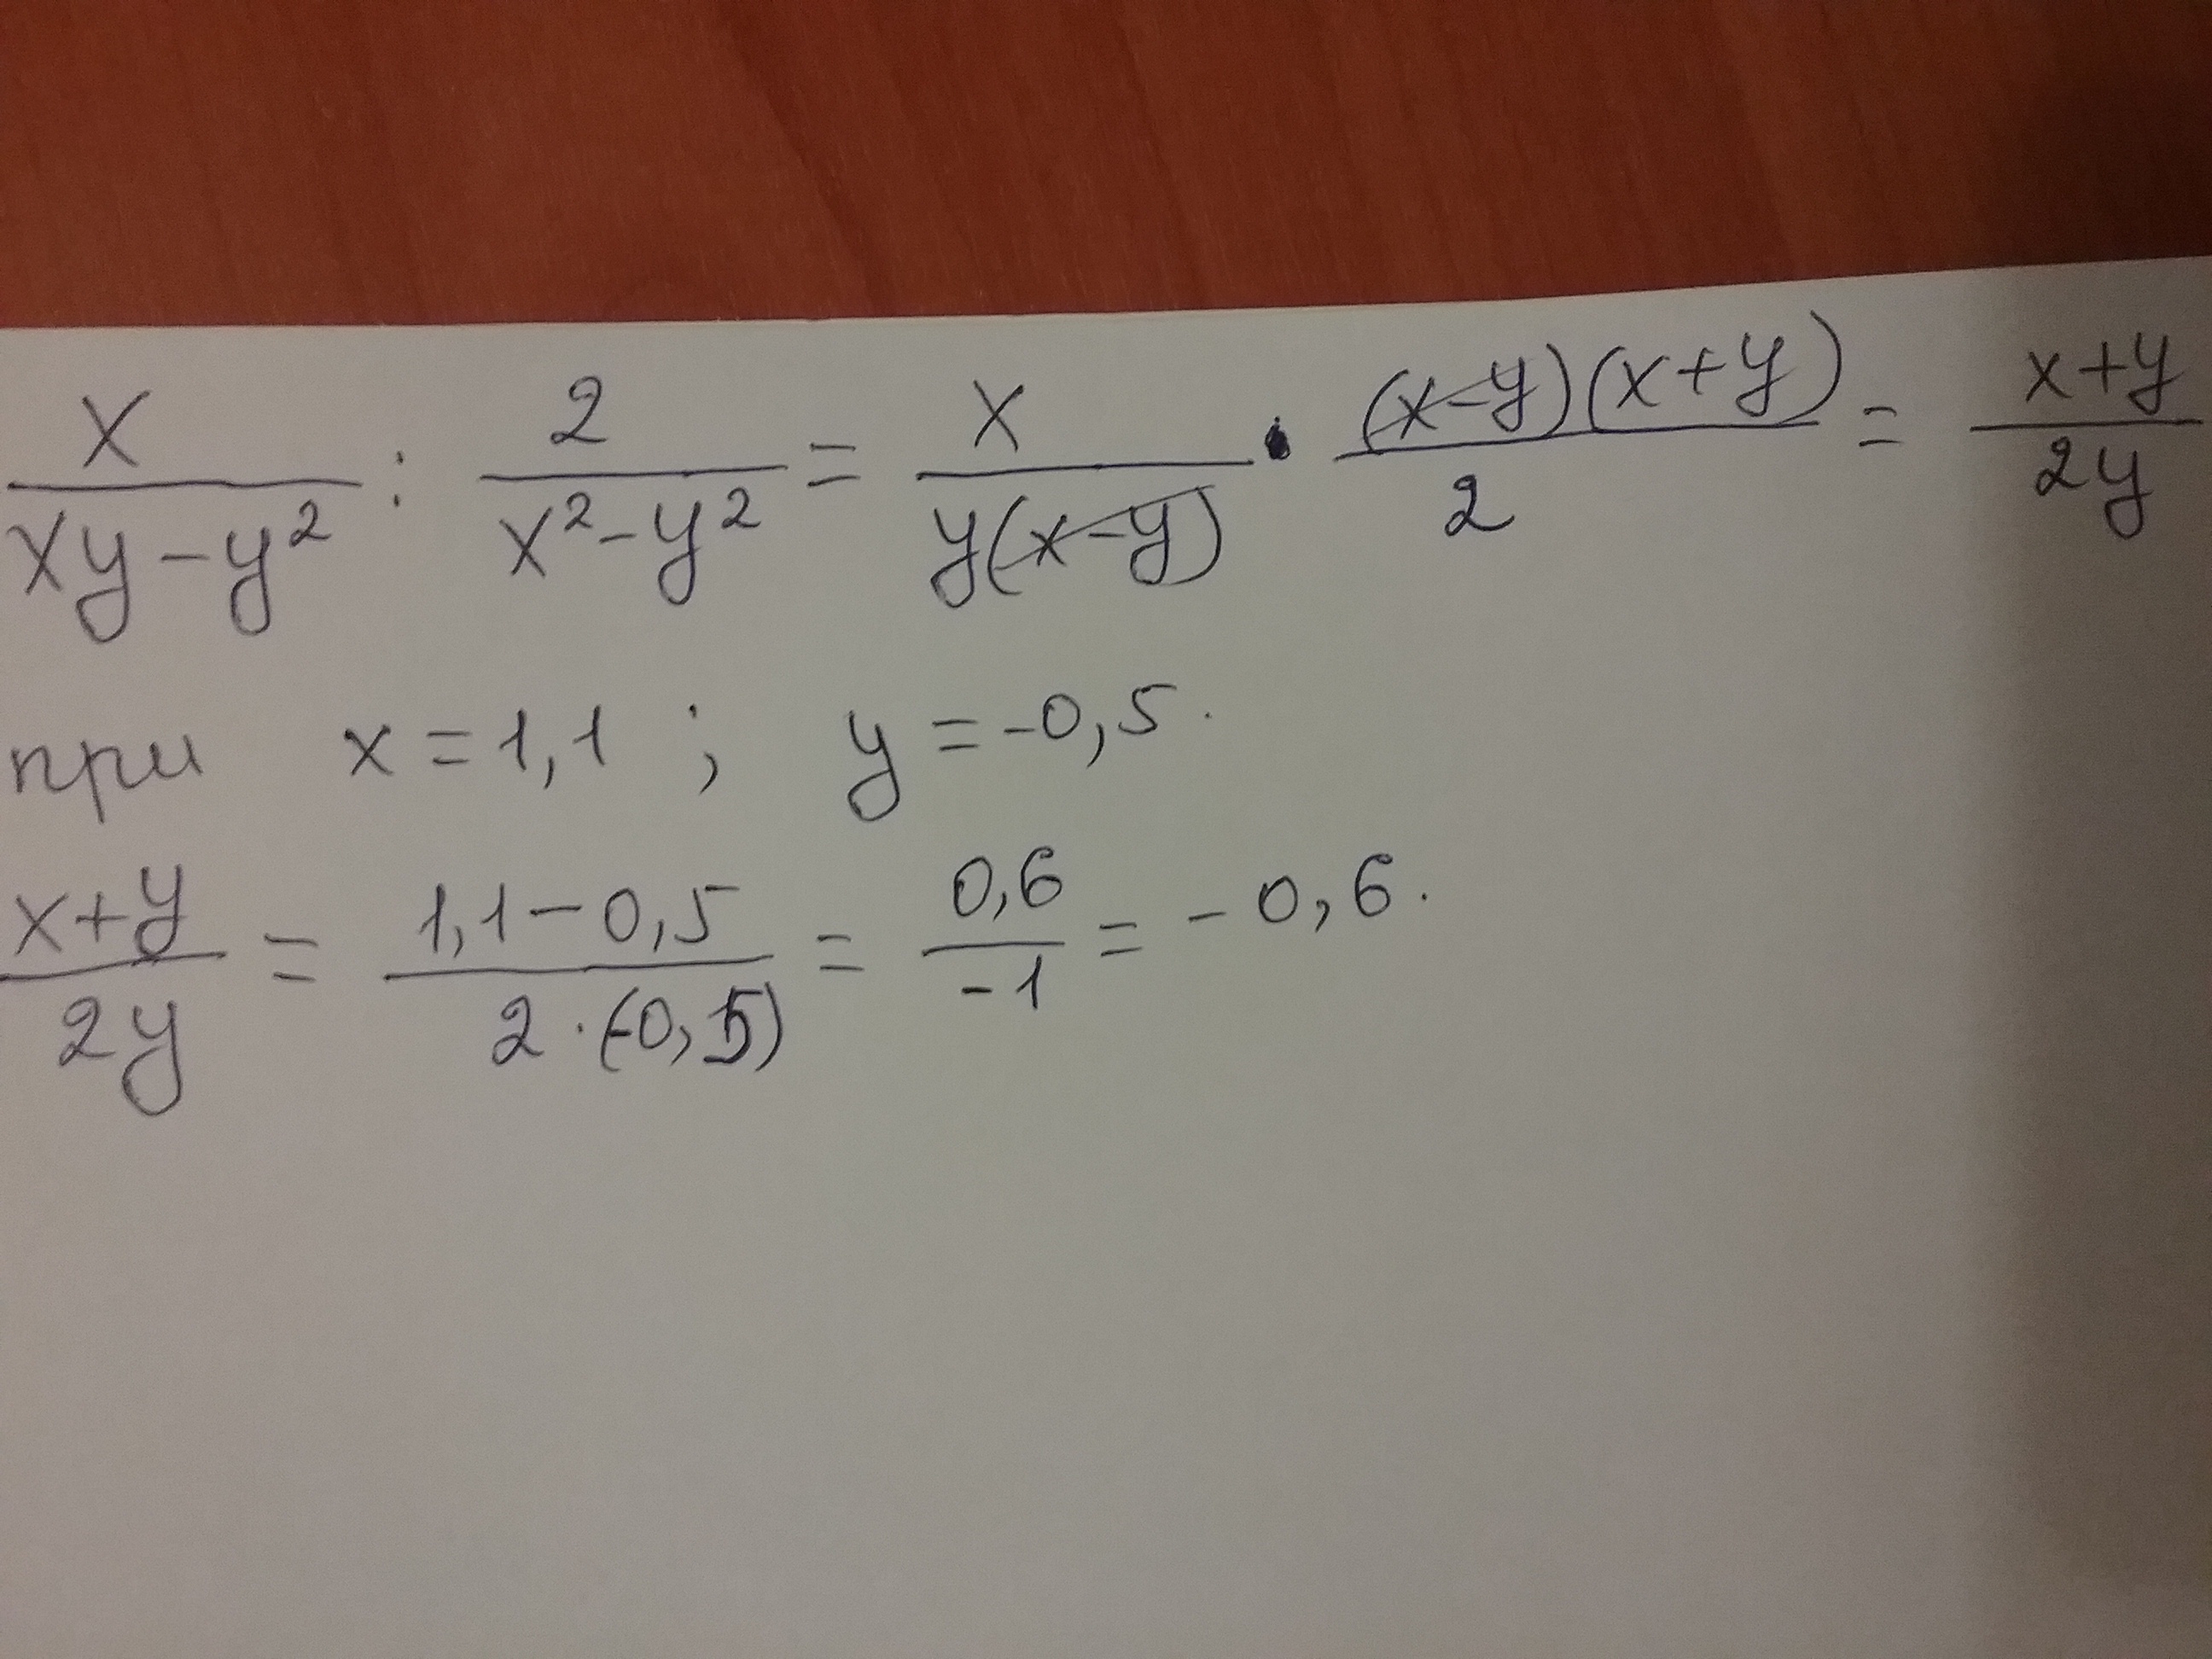 x/(xy-y²) : 2/(x²-y²) = x/(y(x-y)) · ((x-y)(x+y))/2 = (x+y)/(2y)
при x=1,1 ; y=-0,5.
(x+y)/(2y) = (1,1-0,5)/(2·(-0,5)) = 0,6/-1 = -0,6.